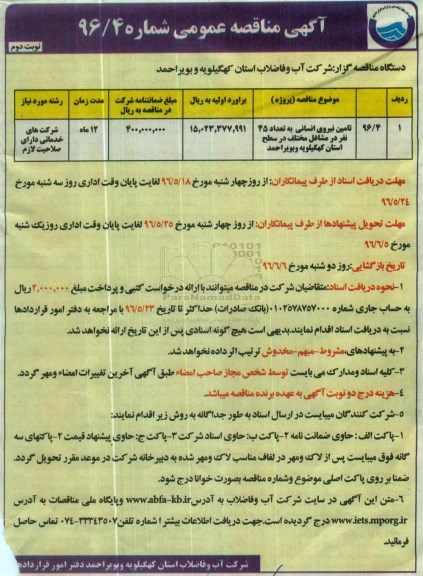 آگهی مناقصه عمومی شماره ۹۶/۴
نوبت دوم
دستگاه مناقصه گزار:شرکت آب وفاضلاب استان کهگیلویه و بویراحمد
ردیف
موضوع مناقصه (پروژه)
براورد اولیه به ریال
مبلغ ضمانتنامه شرکت در مناقصه به ریال
مدت زمان
رشته مورد نیاز
۱
۹۶/۴
تامین نیروی انسانی به تعداد ۴۵ نفر در مشاغل مختلف در سطح استان کهگیلویه وبویراحمد
۱۵,۰۲۳,۳۷۷,۹۹۱
۴۰۰,۰۰۰,۰۰۰
۱۲ ماه
شرکت های خدماتی دارای صلاحیت لازم
مهلت دریافت اسناد از طرف پیمانکاران: از روزچهار شنبه مورخ ۹۶/۵/۱۸ لغایت پایان وقت اداری روز سه شنبه مورخ
۹۶/۵/۲۴
مهلت تحویل پیشنهادها از طرف پیمانکاران: از روز چهار شنبه مورخ ۹۶/۵/۲۵ لغایت پایان وقت اداری روزیک شنبه
مورخ ۹۶/۶/۵
تاریخ بازگشایی:روز دو شنبه مورخ ۹۶/۶/۶
۱-نحوه دریافت اسناد:متقاضیان شرکت در مناقصه میتوانند با ارائه درخواست کتبی و پرداخت مبلغ ۲,۰۰۰,۰۰۰ ریال
به حساب جاری شماره ۰۱۰۲۵۷۸۷۵۷۰۰۰ (بانک صادرات) حداکثر تا تاریخ ۹۶/۵/۲۳ با مراجعه به دفتر امور قراردادها
نسبت به دریافت اسناد اقدام نمایند.بدیهی است هیچ گونه اسنادی پس از این تاریخ ارائه نخواهد شد.
۲-به پیشنهادهای،مشروط-مبهم-مخدوش ترتیب اثر داده نخواهد شد.
۳-کلیه اسناد ومدارک می بایست توسط شخص مجاز صاحب امضاء طبق آگهی آخرین تغییرات امضاء ومهر گردد.
۴-هزینه درج دو نوبت آگهی به عهده برنده مناقصه میباشد.
۵-شرکت کنندگان میبایست در ارسال اسناد به طور جداگانه به روش زیر اقدام نمایند:
۱-پاکت الف : حاوی ضمانت نامه ۲-پاکت ب: حاوی اسناد شرکت ۳-پاکت ج: حاوی پیشنهاد قیمت ۲-پاکتهای سه
گانه فوق میبایست پس از لاک ومهر در لفاف مناسب لاک ومهر شده به دبیرخانه شرکت در موعد مقرر تحویل گردد.
ضمنا بر روی پاکت اصلی موضوع وشماره مناقصه بصورت خوانا درج شود.
۶-متن این آگهی در سایت شرکت آب وفاضلاب به آدرس www.abfa-kb.ir وپایگاه ملی مناقصات به آدرس
www.iets.mporg.ir درج گردیده است.جهت دریافت اطلاعات بیشتر ا شماره تلفن ۰۷۴-۳۳۳۴۳۵۰۷ تماس حاصل
فرمائید.
شرکت آب وفاضلاب استان کهگیلویه وبویراحمد دفتر امور قراردادها